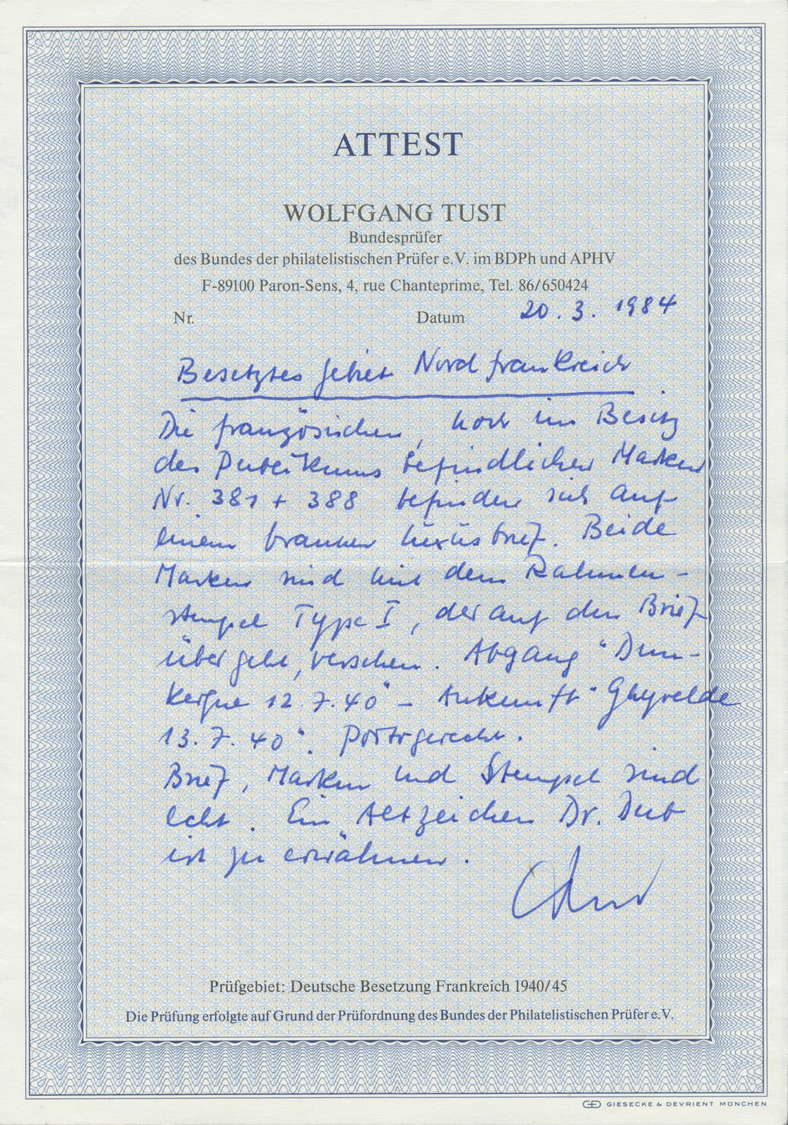 ATTEST
WOLFGANG TUST
Bundesprüfer
des Bundes der philatelistischen Prüfer e.V. im BDPh und APHV
F-89100 Paron-Sens, 4, rue Chanteprime, Tel. 86/650424
Nr. Datum 20.3.1984
Besetztes Gebiet Nordfrankreich
Die französischen, noch im Besitz
des Publikums befindlichen Marken
Nr. 381 + 388 befinden sich auf
einem braunen Luxusbrief. Beide
Marken sind mit dem Rahmen-
stempel Type I, der auf den Brief
übergeht, versehen. Abgang "Dun-
kerque 12.7.40" - Ankunft "Ghyvelde
13.7.40". Portogerecht.
Brief, Marken und Stempel sind
echt. Ein Altzeichen Dr. Dub
ist zu erwähnen.
Prüfgebiet: Deutsche Besetzung Frankreich 1940/45
Die Prüfung erfolgte auf Grund der Prüfordnung des Bundes der Philatelistischen Prüfer e.V.
GIESECKE & DEVRIENT MÜNCHEN